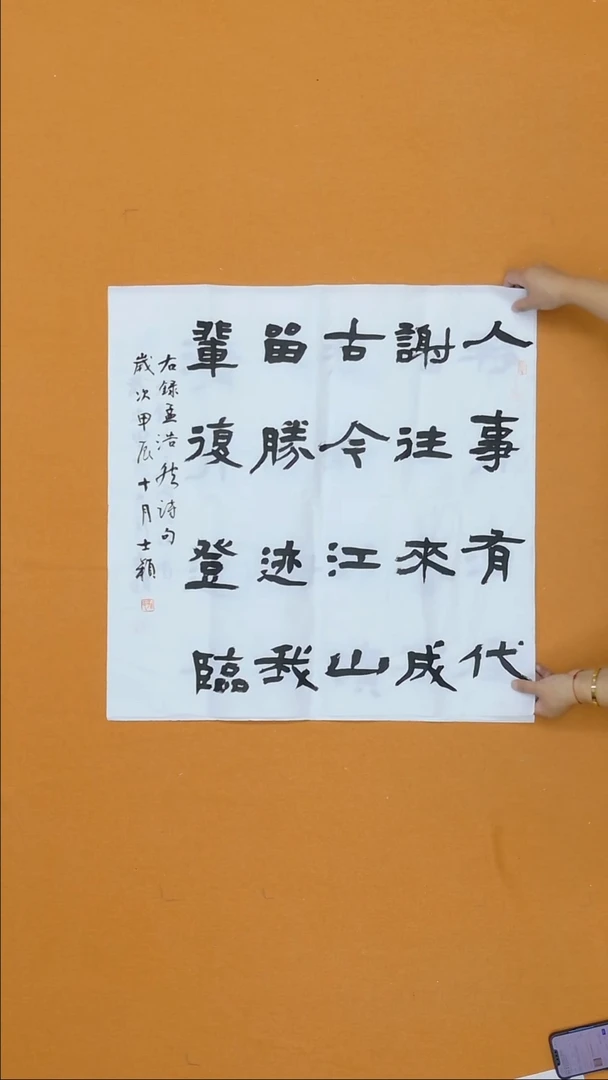 人事有代
謝往來成
古今江山
留勝迹我
輩復登臨
右録孟浩然詩句
歲次甲辰十月士穎